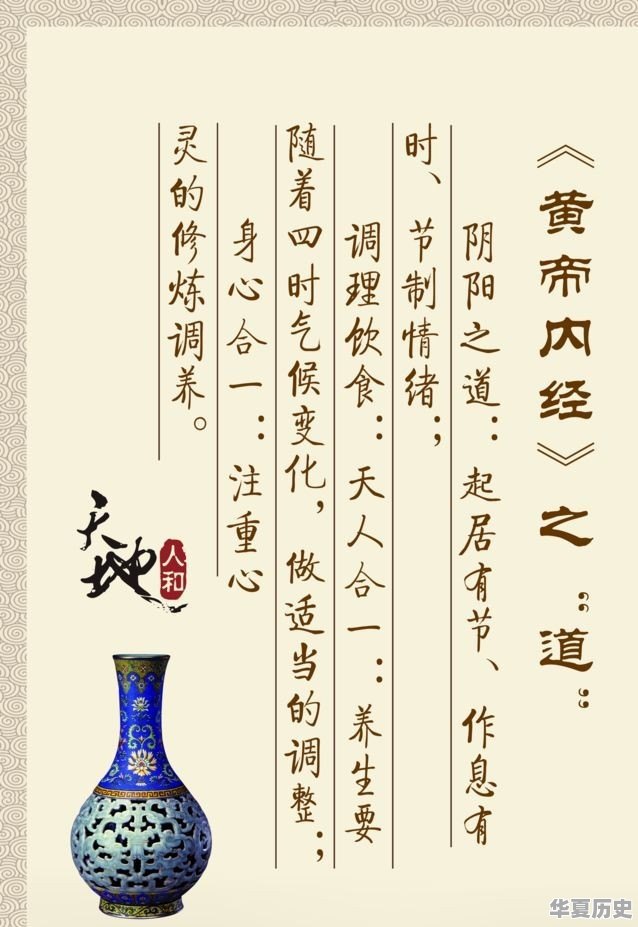 《黄帝内经》之“道”
阴阳之道：起居有节、作息有
时、节制情绪；
调理饮食：天人合一：养生要
随着四时气候变化，做适当的调整；
身心合一：注重心
灵的修炼调养。
天地
人和
华夏历史